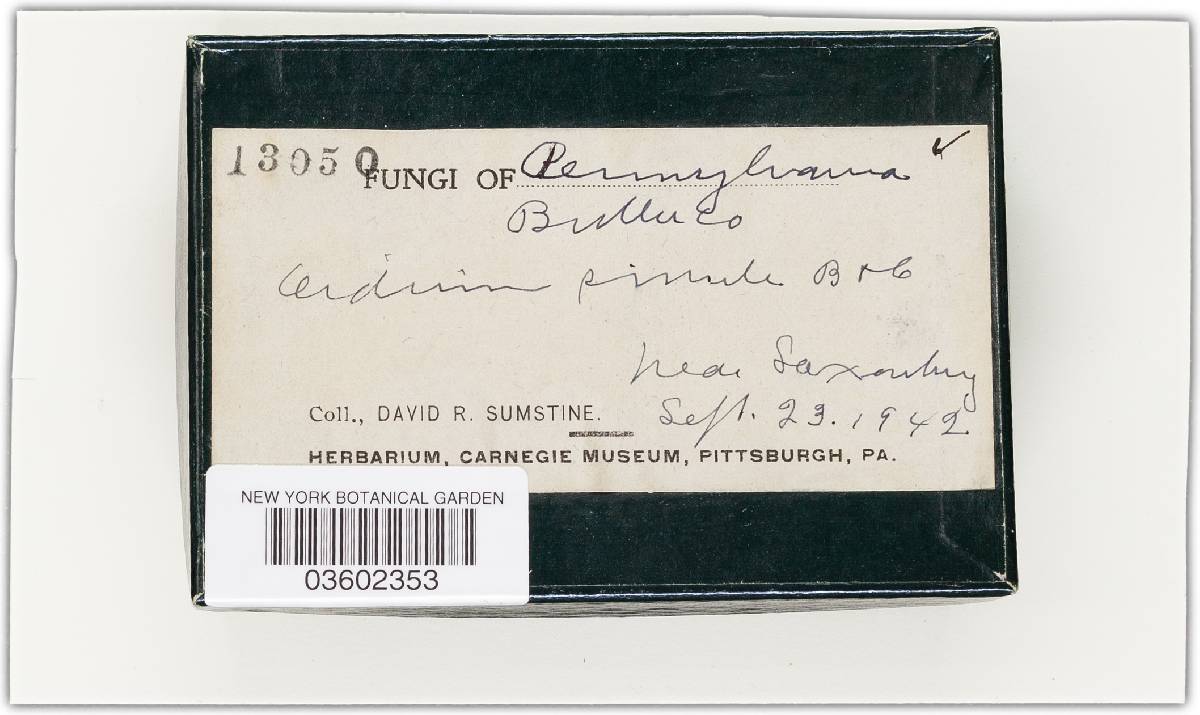 13050
FUNGI OF Pennsylvania ✓
Butler Co
Oidium simile B & C
Near Saxonburg
Coll., DAVID R. SUMSTINE. Sept. 23. 1942
HERBARIUM, CARNEGIE MUSEUM, PITTSBURGH, PA.
NEW YORK BOTANICAL GARDEN
03602353